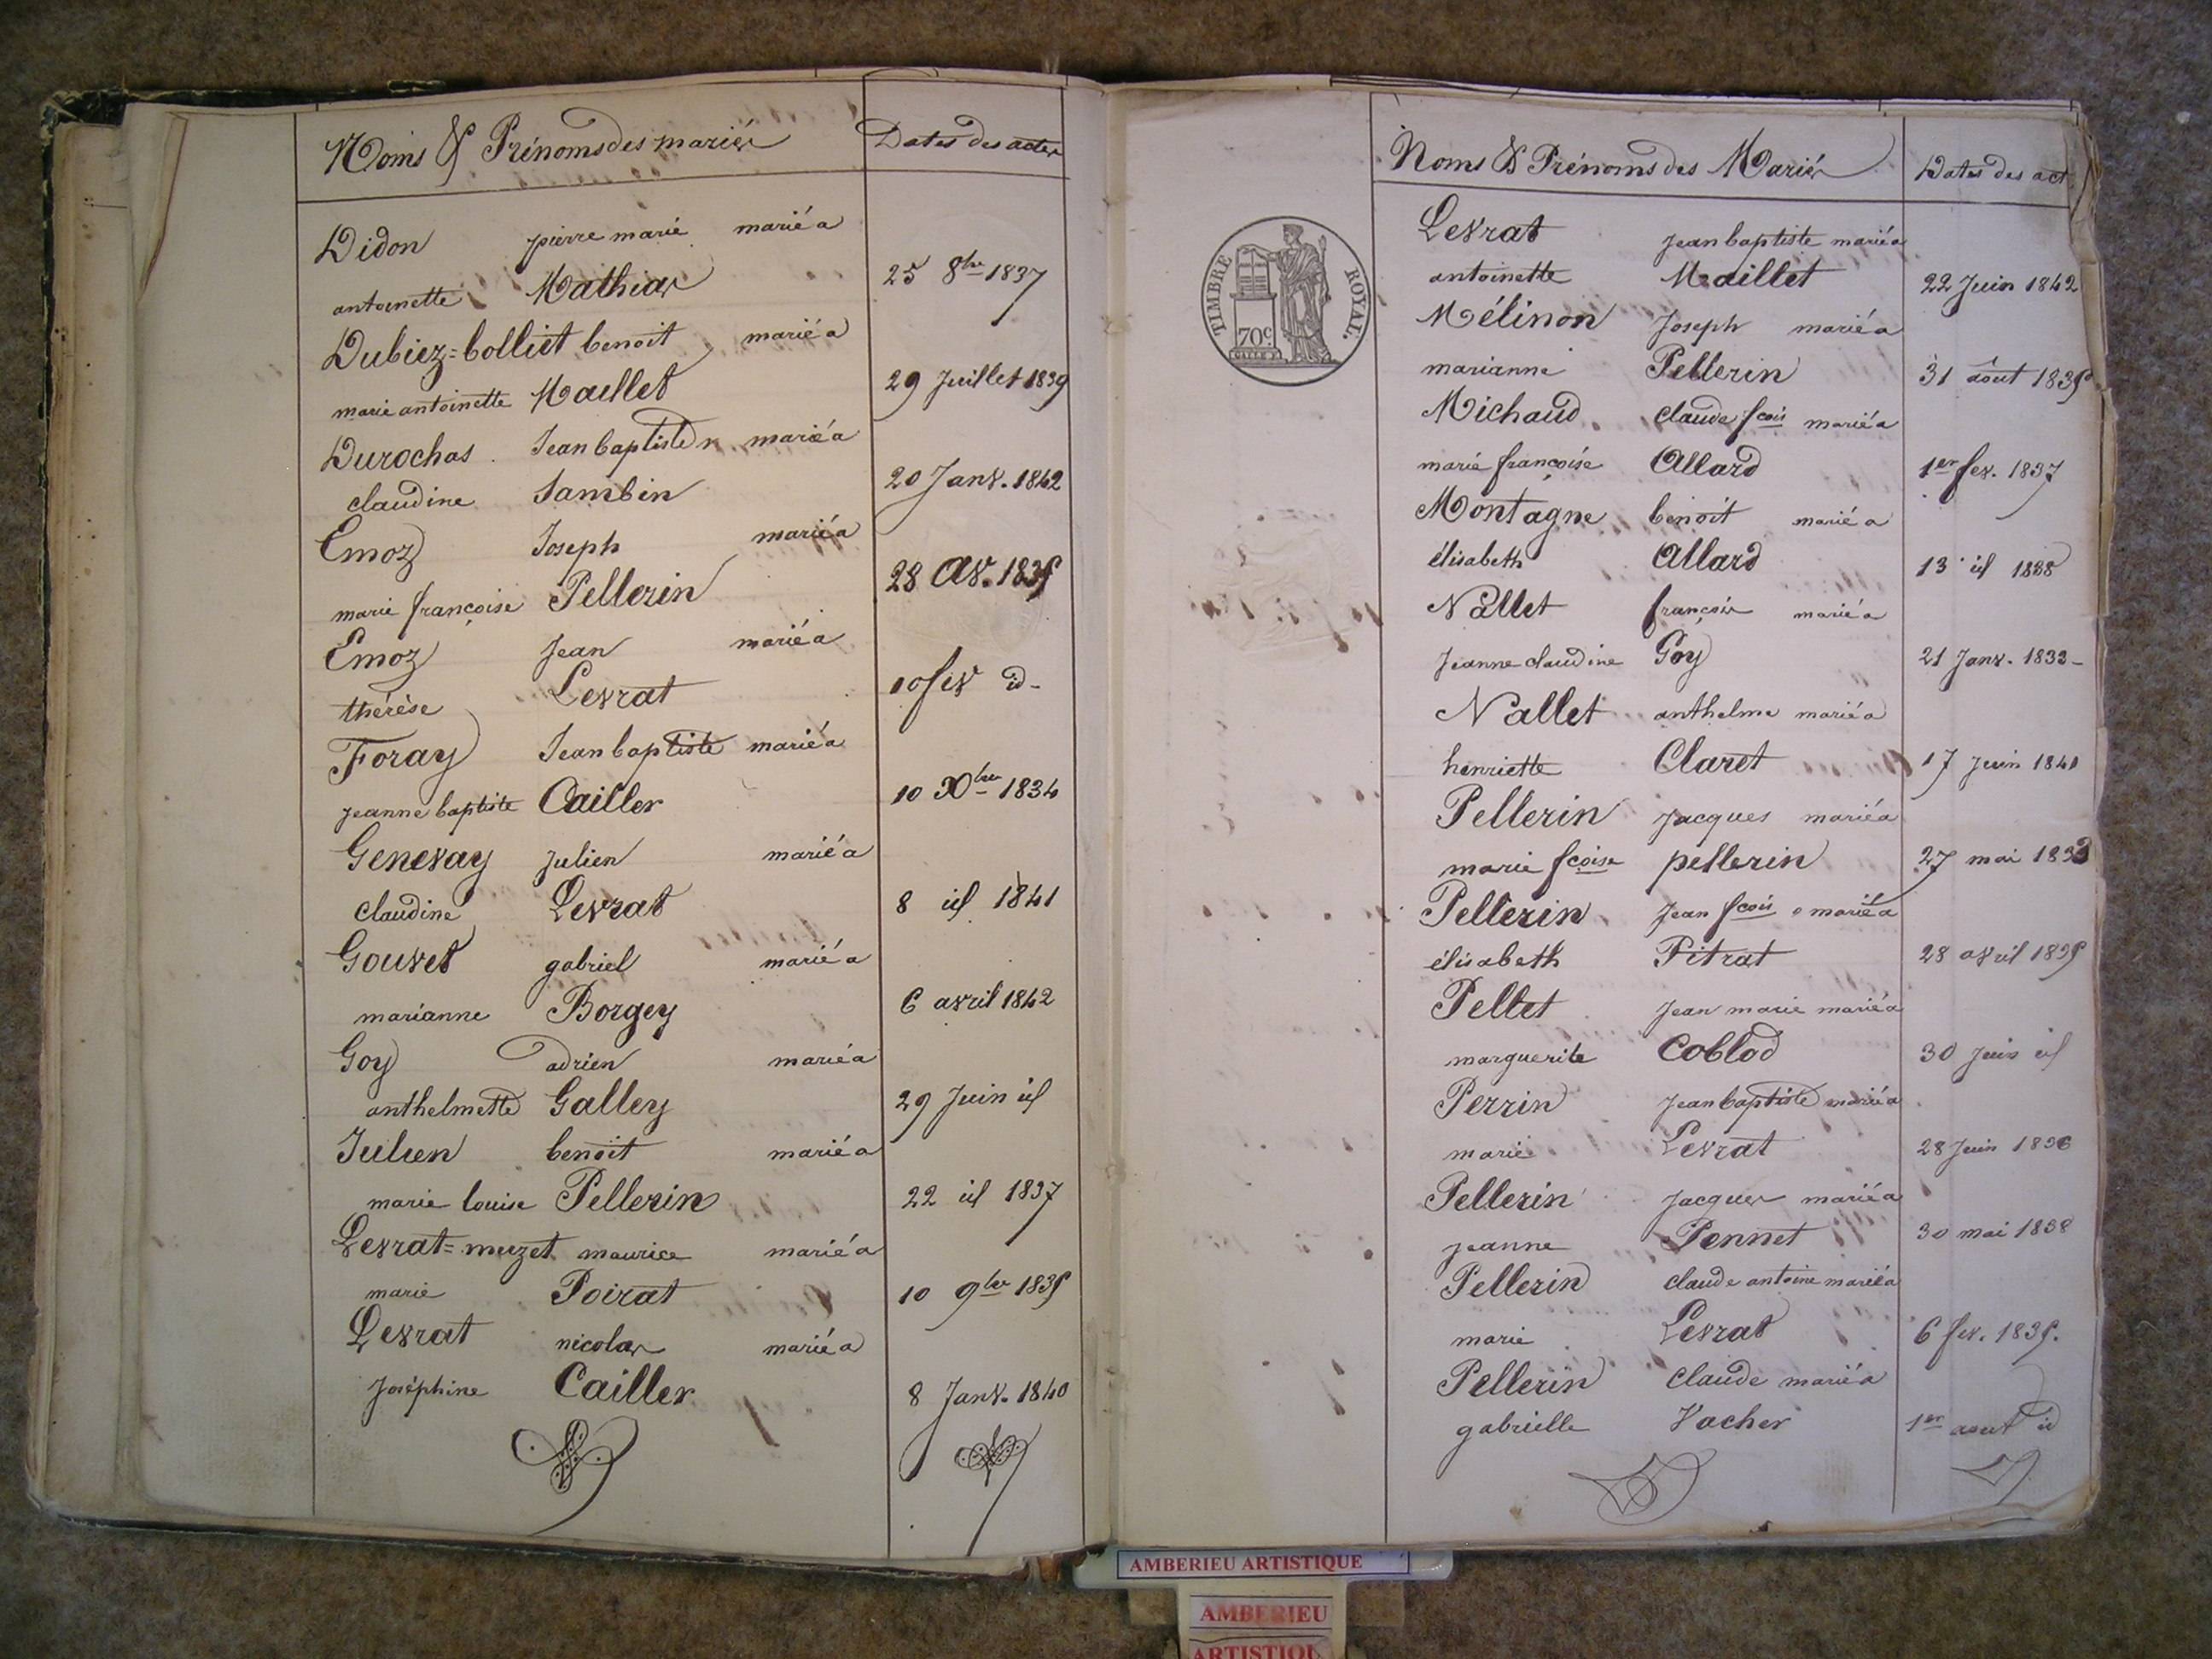 Noms & Prénoms des mariés Dates des actes
Didon pierre marie marié a
antoinette Mathias 25 8bre 1837
Dubiez=bolliet benoit marié a
marie antoinette Maillet 29 Juillet 1839
Durochas Jean baptiste marié a
claudine Jambin 20 Janv. 1842
Emoz Joseph marié a
marie françoise Pellerin 28 av. 1835
Emoz Jean marié a
thérèse Levrat 10 fev id
Foray Jean baptiste marié a
jeanne baptiste Cailler 10 Xbre 1834
Genevay Julien marié a
claudine Levrat 8 id 1841
Gouvet gabriel marié a
marianne Borgey 6 avril 1842
Goy adrien marié a
anthelmette Galley 29 Juin id
Julien benoit marié a
marie louise Pellerin 22 id 1837
Levrat=muzet maurice marié a
marie Poirat 10 9bre 1835
Levrat nicolas marié a
Joséphine Cailler 8 Janv. 1840
Noms & Prénoms des Mariés Dates des act
TIMBRE ROYAL.
70c
Levrat Jean baptiste marié a
antoinette Maillet 22 Juin 1842
Mélinon Joseph marié a
marianne Pellerin 31 août 1835
Michaud claude fcois marié a
marie françoise Allard 1er fev. 1837
Montagne benoit marié a
élisabeth Allard 13 id 1838
Nallet françois marié a
Jeanne claudine Goy 21 Janv. 1833
Nallet anthelme marié a
henriette Claret 17 Juin 1841
Pellerin Jacques marié a
marie fcoise pellerin 27 mai 1833
Pellerin Jean fcois marié a
élisabeth Pitrat 28 avril 1835
Pellet Jean marie marié a
marguerite Coblod 30 Juin id
Perrin Jean baptiste marié a
marie Levrat 28 Juin 1836
Pellerin Jacques marié a
jeanne Pennet 30 mai 1838
Pellerin claude antoine marié a
marie Levrat 6 fev. 1835.
Pellerin Claude marié a
gabrielle Vacher 1er aout id
AMBERIEU ARTISTIQUE
AMBERIEU
ARTISTIQU